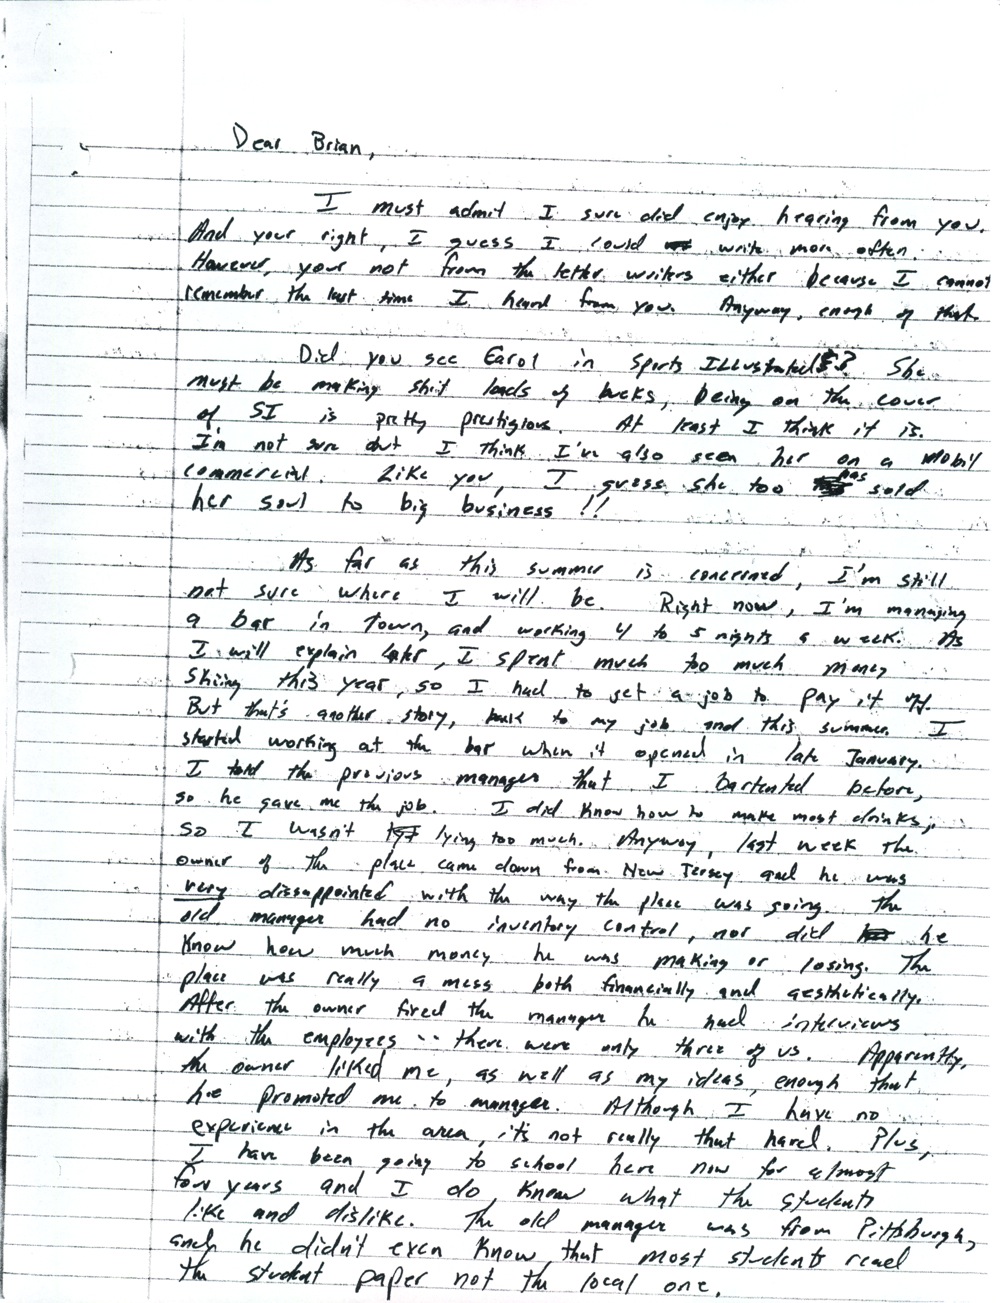 Dear Brian,
I must admit I sure did enjoy hearing from you.
And your right, I guess I could write more often.
However, your not from the letter writers either because I cannot
remember the last time I heard from you. Anyway, enogh of that.
Did you see Carol in Sports ILLustrated?? She
must be making shit loads of bucks, being on the cover
of SI is pretty prestigious. At least I think it is.
I'm not sure but I think I've also seen her on a Mobil
commercial. Like you, I guess she too has sold
her soul to big business!!
As far as this summer is concerned, I'm still
not sure where I will be. Right now, I'm managing
a bar in town, and working 4 to 5 nights a week. As
I will explain later, I spent much too much money
skiing this year, so I had to get a job to pay it off.
But that's another story, back to my job and this summer. I
started working at the bar when it opened in late January.
I told the previous manager that I bartented before,
so he gave me the job. I did know how to make most drinks,
so I wasn't lying too much. Anyway, last week the
owner of the place came down from New Jersey and he was
very dissappointed with the way the place was going. The
old manager had no inventory control, nor did he
know how much money he was making or losing. The
place was really a mess both financially and aesthetically.
After the owner fired the manager he had interviews
with the employees -- there were only three of us. Apparently,
the owner liked me, as well as my ideas, enough that
he promoted me to manager. Although I have no
experience in the area, it's not really that hard. Plus,
I have been going to school here now for almost
four years and I do know what the students
like and dislike. The old manager was from Pittsburgh,
and he didn't even know that most students read
the student paper not the local one.